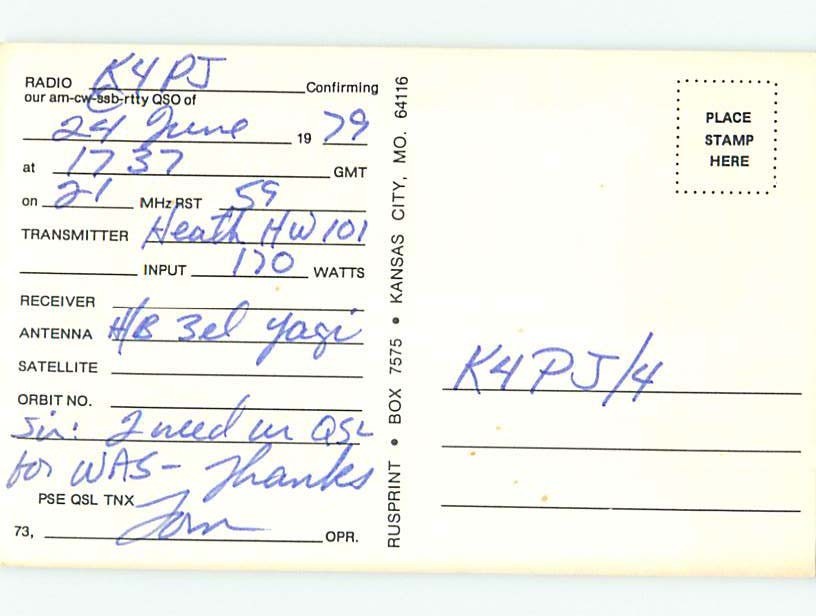 RADIO K4PJ Confirming
our am-cw-ssb-rtty QSO of
24 June 19 79
at 1737 GMT
on 21 MHz RST 59
TRANSMITTER Heath HW 101
INPUT 170 WATTS
RECEIVER
ANTENNA H/B 3el yagi
SATELLITE
ORBIT NO.
Sir: I need ur QSL
for WAS - Thanks
PSE QSL TNX
73, Tom OPR.
RUSPRINT • BOX 7575 • KANSAS CITY, MO. 64116
PLACE
STAMP
HERE
K4PJ/4